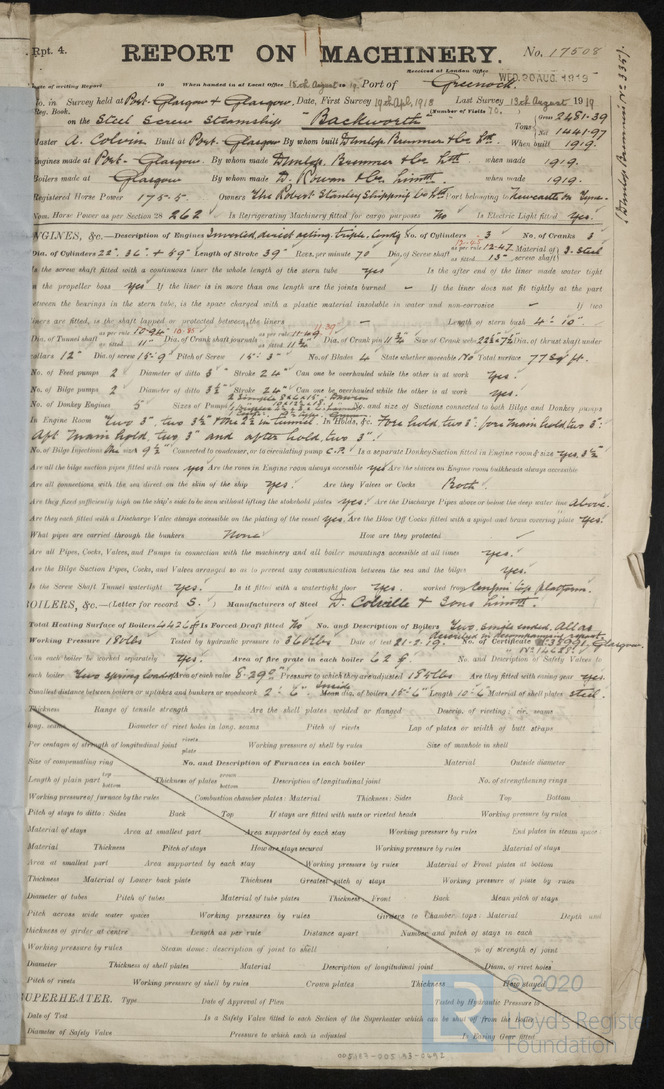 Rpt. 4.
REPORT ON MACHINERY. No. 17508
Received at London Office WED. 20 AUG. 1919
Date of writing Report 19 When handed in at Local Office 18th August 1919 Port of Greenock
No. in Reg. Book. Survey held at Port-Glasgow & Glasgow, Date, First Survey 19th April, 1918 Last Survey 13th August 1919
(Number of Visits 70.
on the Steel Screw Steamship "Backworth" Tons Gross 2481.39 Net 1441.97
Master A. Colvin Built at Port-Glasgow By whom built Dunlop Bremner & Co Ltd. When built 1919.
Engines made at Port-Glasgow. By whom made Dunlop. Bremner & Co. Ltd when made 1919.
Boilers made at Glasgow By whom made D. Rowan & Co. Limtd. when made 1919.
Registered Horse Power 175.5 Owners The Robert Stanley Shipping Co Ltd Port belonging to Newcastle on Tyne.
Nom. Horse Power as per Section 28 262 Is Refrigerating Machinery fitted for cargo purposes No Is Electric Light fitted Yes.
ENGINES, &c.—Description of Engines Inverted, direct acting, triple, No. of Cylinders 3 No. of Cranks 3
Dia. of Cylinders 22". 36" & 59" Length of Stroke 39" Revs. per minute 70 Dia. of Screw shaft as per rule 12.47 as fitted 13" Material of screw shaft S. Steel
Is the screw shaft fitted with a continuous liner the whole length of the stern tube yes Is the after end of the liner made water tight
in the propeller boss yes If the liner is in more than one length are the joints burned — If the liner does not fit tightly at the part
between the bearings in the stern tube, is the space charged with a plastic material insoluble in water and non-corrosive — If two
liners are fitted, is the shaft lapped or protected between the liners — Length of stern bush 4'-10"
Dia. of Tunnel shaft as per rule 10.94 10.85 as fitted 11" Dia. of Crank shaft journals as per rule 11.49 11.39 as fitted 11¾" Dia. of Crank pin 11¾" Size of Crank webs Dia. of thrust shaft under
collars 12" Dia. of screw 15'-9" Pitch of Screw 15'-3" No. of Blades 4 State whether moveable No Total surface 77 Sq ft.
No. of Feed pumps 2 Diameter of ditto 3" Stroke 24" Can one be overhauled while the other is at work Yes.
No. of Bilge pumps 2 Diameter of ditto 3½" Stroke 24" Can one be overhauled while the other is at work yes.
No. of Donkey Engines 5 Sizes of Pumps No. and size of Suctions connected to both Bilge and Donkey pumps
In Engine Room Two 3", two 3½" & one 2½ in tunnel. In Holds, &c. Fore hold, two 3", fore main hold, two 3".
Aft Main hold, two 3" and after hold, two 3".
No. of Bilge Injections One size 9½" Connected to condenser, or to circulating pump C.P. Is a separate Donkey Suction fitted in Engine room & size yes, 3½"
Are all the bilge suction pipes fitted with roses yes Are the roses in Engine room always accessible yes Are the sluices on Engine room bulkheads always accessible
Are all connections with the sea direct on the skin of the ship yes. Are they Valves or Cocks Both.
Are they fixed sufficiently high on the ship's side to be seen without lifting the stokehold plates yes. Are the Discharge Pipes above or below the deep water line above.
Are they each fitted with a Discharge Valve always accessible on the plating of the vessel yes. Are the Blow Off Cocks fitted with a spigot and brass covering plate yes.
What pipes are carried through the bunkers None How are they protected
Are all Pipes, Cocks, Valves, and Pumps in connection with the machinery and all boiler mountings accessible at all times yes.
Are the Bilge Suction Pipes, Cocks, and Valves arranged so as to prevent any communication between the sea and the bilges yes.
Is the Screw Shaft Tunnel watertight Yes. Is it fitted with a watertight door yes. worked from Engine top platform.
BOILERS, &c.—(Letter for record S.) Manufacturers of Steel D. Colville & Sons Limtd.
Total Heating Surface of Boilers 4426 Is Forced Draft fitted No No. and Description of Boilers Two, single ended, All as described in accompanying report
Working Pressure 180 lbs Tested by hydraulic pressure to 360 lbs Date of test 21-2-19. No. of Certificate Glasgow.
Can each boiler be worked separately Yes. Area of fire grate in each boiler 62 No. and Description of Safety Valves to
each boiler Two spring loaded Area of each valve 8.29 Pressure to which they are adjusted 185 lbs Are they fitted with easing gear yes.
Smallest distance between boilers or uptakes and bunkers or woodwork 2'-6" Inside Mean dia. of boilers 15'-6" Length 10'-6" Material of shell plates steel.
Thickness Range of tensile strength Are the shell plates welded or flanged Descrip. of riveting: cir. seams
long. seams Diameter of rivet holes in long. seams Pitch of rivets Lap of plates or width of butt straps
Per centages of strength of longitudinal joint rivets plate Working pressure of shell by rules Size of manhole in shell
Size of compensating ring No. and Description of Furnaces in each boiler Material Outside diameter
Length of plain part top bottom Thickness of plates crown bottom Description of longitudinal joint No. of strengthening rings
Working pressure of furnace by the rules Combustion chamber plates: Material Thickness: Sides Back Top Bottom
Pitch of stays to ditto: Sides Back Top If stays are fitted with nuts or riveted heads Working pressure by rules
Material of stays Area at smallest part Area supported by each stay Working pressure by rules End plates in steam space:
Material Thickness Pitch of stays How are stays secured Working pressure by rules Material of stays
Area at smallest part Area supported by each stay Working pressure by rules Material of Front plates at bottom
Thickness Material of Lower back plate Thickness Greatest pitch of stays Working pressure of plate by rules
Diameter of tubes Pitch of tubes Material of tube plates Thickness: Front Back Mean pitch of stays
Pitch across wide water spaces Working pressures by rules Girders to Chamber tops: Material Depth and
thickness of girder at centre Length as per rule Distance apart Number and pitch of stays in each
Working pressure by rules Steam dome: description of joint to shell % of strength of joint
Diameter Thickness of shell plates Material Description of longitudinal joint Diam. of rivet holes
Pitch of rivets Working pressure of shell by rules Crown plates Thickness How stayed
SUPERHEATER. Type Date of Approval of Plan Tested by Hydraulic Pressure to
Date of Test Is a Safety Valve fitted to each Section of the Superheater which can be shut off from the Boiler
Diameter of Safety Valve Pressure to which each is adjusted Is Easing Gear fitted
(Dunlop Bremner No 335).
© 2020
Lloyd's Register
Foundation
005193-005193-0492